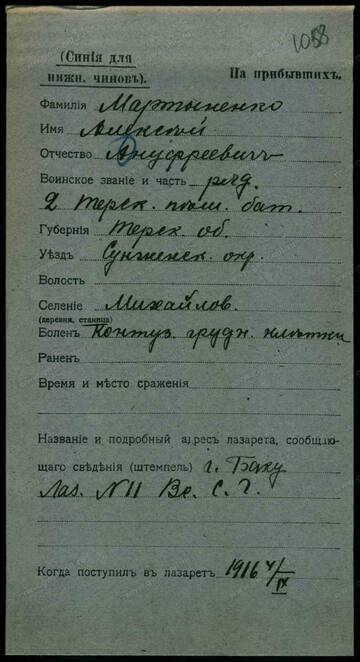 1058
(Синія для
нижн. чиновъ).
На прибывшихъ.
Фамилія Мартыненко
Имя Алексѣй
Отчество Ануфреевичъ
Воинское званіе и часть ряд.
2 Терск. плас. бат.
Губернія Терск. об.
Уѣздъ Сунженск. окр.
Волость
Селеніе Михайлов.
(деревня, станица)
Боленъ Контуз. грудн. клѣтки
Раненъ
Время и мѣсто сраженія
Названіе и подробный адресъ лазарета, сообщаю-
щаго свѣдѣнія (штемпель) г. Баку
Лаз. N 11 Вс. С. Г.
Когда поступилъ въ лазаретъ 1916 4/IX